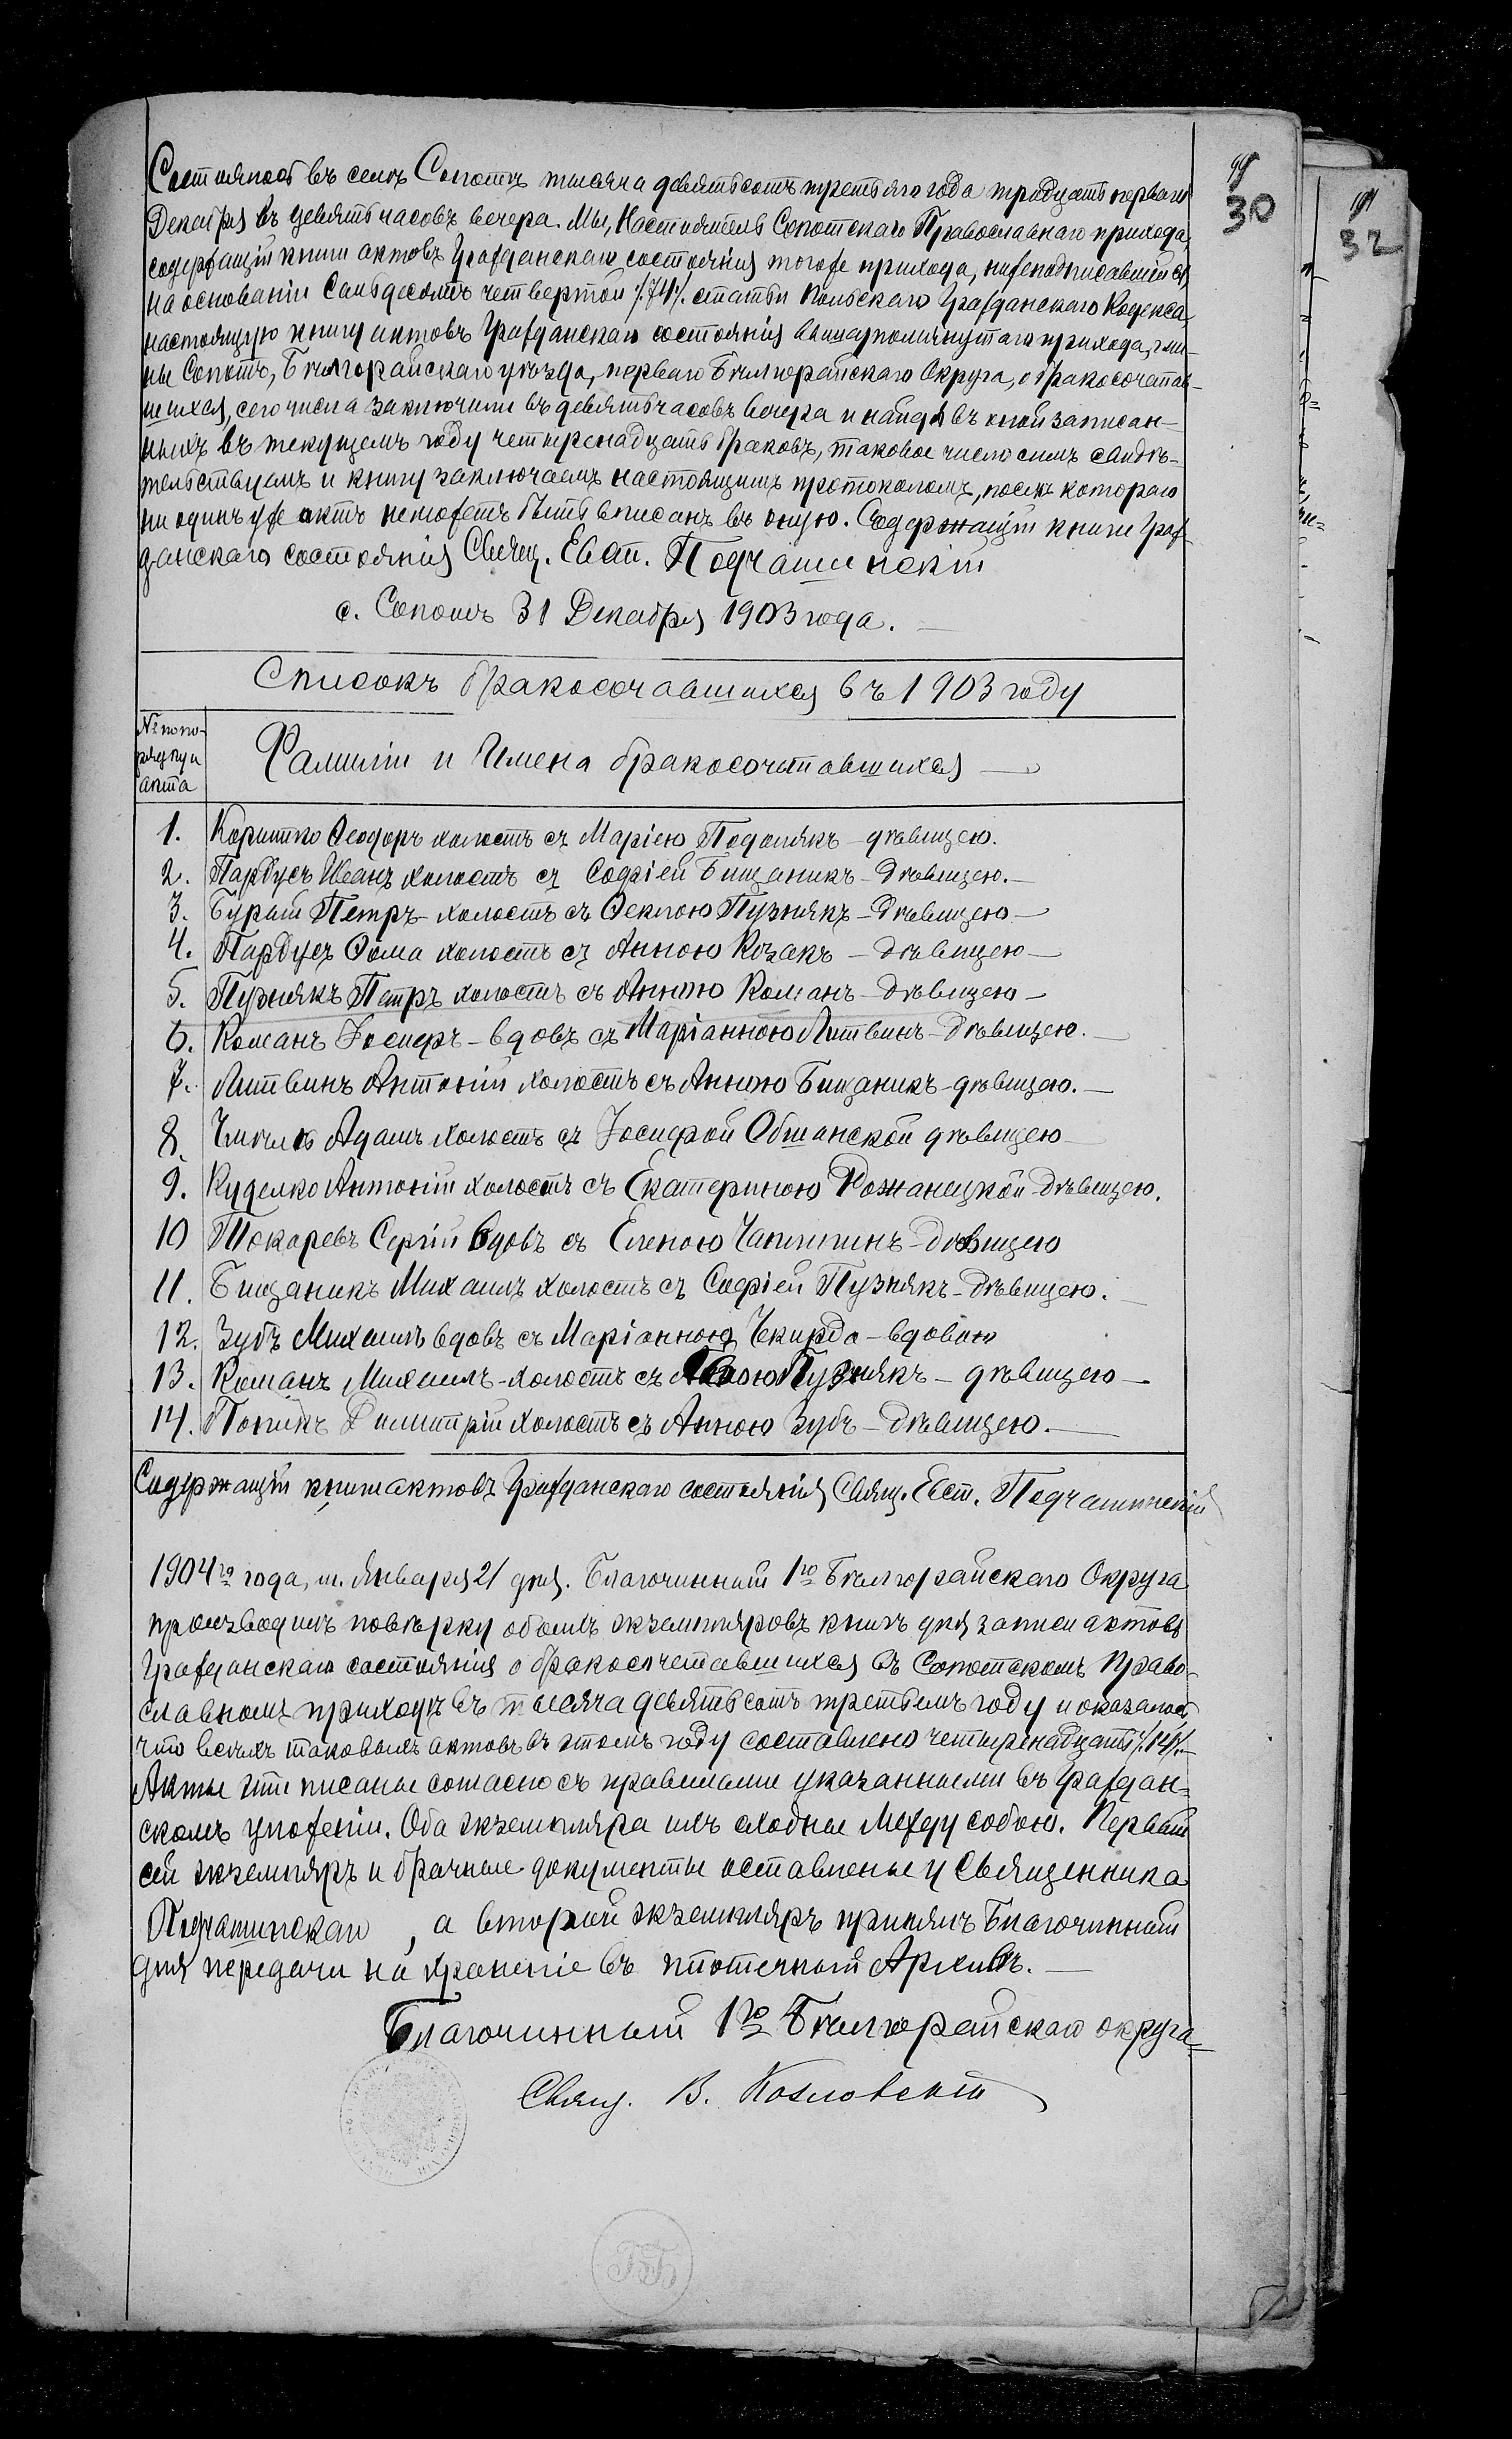 Состоялось въ селѣ Сопотъ тысяча девятьсотъ третьяго года тридцать перваго
Декабря въ девять часовъ вечера. Мы, Настоятель Сопотскаго Православнаго прихода,
содержащій книги актовъ Гражданскаго состоянія тогоже прихода, нижеподписавшійся,
на основаніи Семьдесятъ четвертой /:74:/ статьи Польскаго Гражданскаго Кодекса
настоящую книгу актовъ Гражданскаго состоянія вышеупомянутаго прихода, гми-
ны Сопотъ, Бѣлгорайскаго уѣзда, перваго Бѣлгорайскаго Округа, о бракосочетав-
шихся, сего числа заключили въ девять часовъ вечера и найдя въ оной записан-
ныхъ въ текущемъ году четырнадцать браковъ, таковое число симъ свидѣ-
тельствуемъ и книгу заключаемъ настоящимъ протоколомъ, послѣ котораго
ни одинъ уже актъ неможетъ быть вписанъ въ оную. Содержащій книги Граж-
данскаго состоянія Свящ. Подчашинскій
с. Сопотъ 31 Декабря 1903 года.
Списокъ бракосочавшихся въ 1903 году
№ по по-
рядку и
акта
Фамиліи и Имена бракосочетавшихся
1. Коритко Ѳеодоръ холостъ съ Маріею Подолякъ - дѣвицею.
2. Пардусъ Иванъ холостъ съ Софіей Бищаникъ - дѣвицею.
3. Бурый Петръ - холостъ съ Ѳеклою Пузнякъ - дѣвицею
4. Пардусъ Ѳома холостъ съ Анною Козакъ - дѣвицею
5. Пузнякъ Петръ холостъ съ Анною Команъ - дѣвицею
6. Команъ Іосифъ - вдовъ съ Маріанною Литвинъ - дѣвицею.
7. Литвинъ Антоній холостъ съ Анною Бищаникъ - дѣвицею.
8. Адамъ холостъ съ Іосифой Обшанской дѣвицею
9. Куделко Антоній холостъ съ Екатериною Рожанецкой - дѣвицею.
10 Токаревъ Сергій вдовъ съ Еленою - дѣвицею
11. Бищаникъ Михаилъ холостъ съ Софіей Пузнякъ - дѣвицею.
12. Зубъ Михаилъ вдовъ съ Маріанною Чкирда - вдовою
13. Команъ Михаилъ - холостъ съ Пузнякъ - дѣвицею
14. Попикъ Димитрій холостъ съ Анною Зубъ - дѣвицею.
Содержащій книги актовъ Гражданскаго состоянія Свящ. Подчашинскій
1904го года, м. Января 21 дня. Благочинный 1го Бѣлгорайскаго Округа
производилъ повѣрку обоихъ экземпляровъ книгъ для записи актовъ
Гражданскаго состоянія о бракосочетавшихся въ Сопотскомъ Право-
славномъ приходѣ въ тысяча девятьсотъ третьемъ году и оказалось
что всѣхъ таковыхъ актовъ въ этомъ году составлено четырнадцать /:14:/.
Акты эти писаны согласно съ правилами указанными въ Граждан-
скомъ уложеніи. Оба экземпляра ихъ сходны между собою. Первый
сей экземпляръ и брачные документы оставлены у Священника
Подчашинскаго, а второй экземпляръ принялъ Благочинный
для передачи на храненіе въ ипотечный Архивъ.
Благочинный 1го Бѣлгорайскаго округа
Свящ. В. Козловскій
30
32